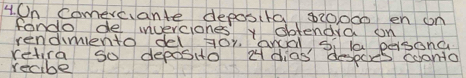 4. Un comerciante deposita $20,000 en un
fondo de inverciones y obtendra un
rendimiento del 70% anual, si la persona
retira so deposito 24 dias despues cuanto
recibe